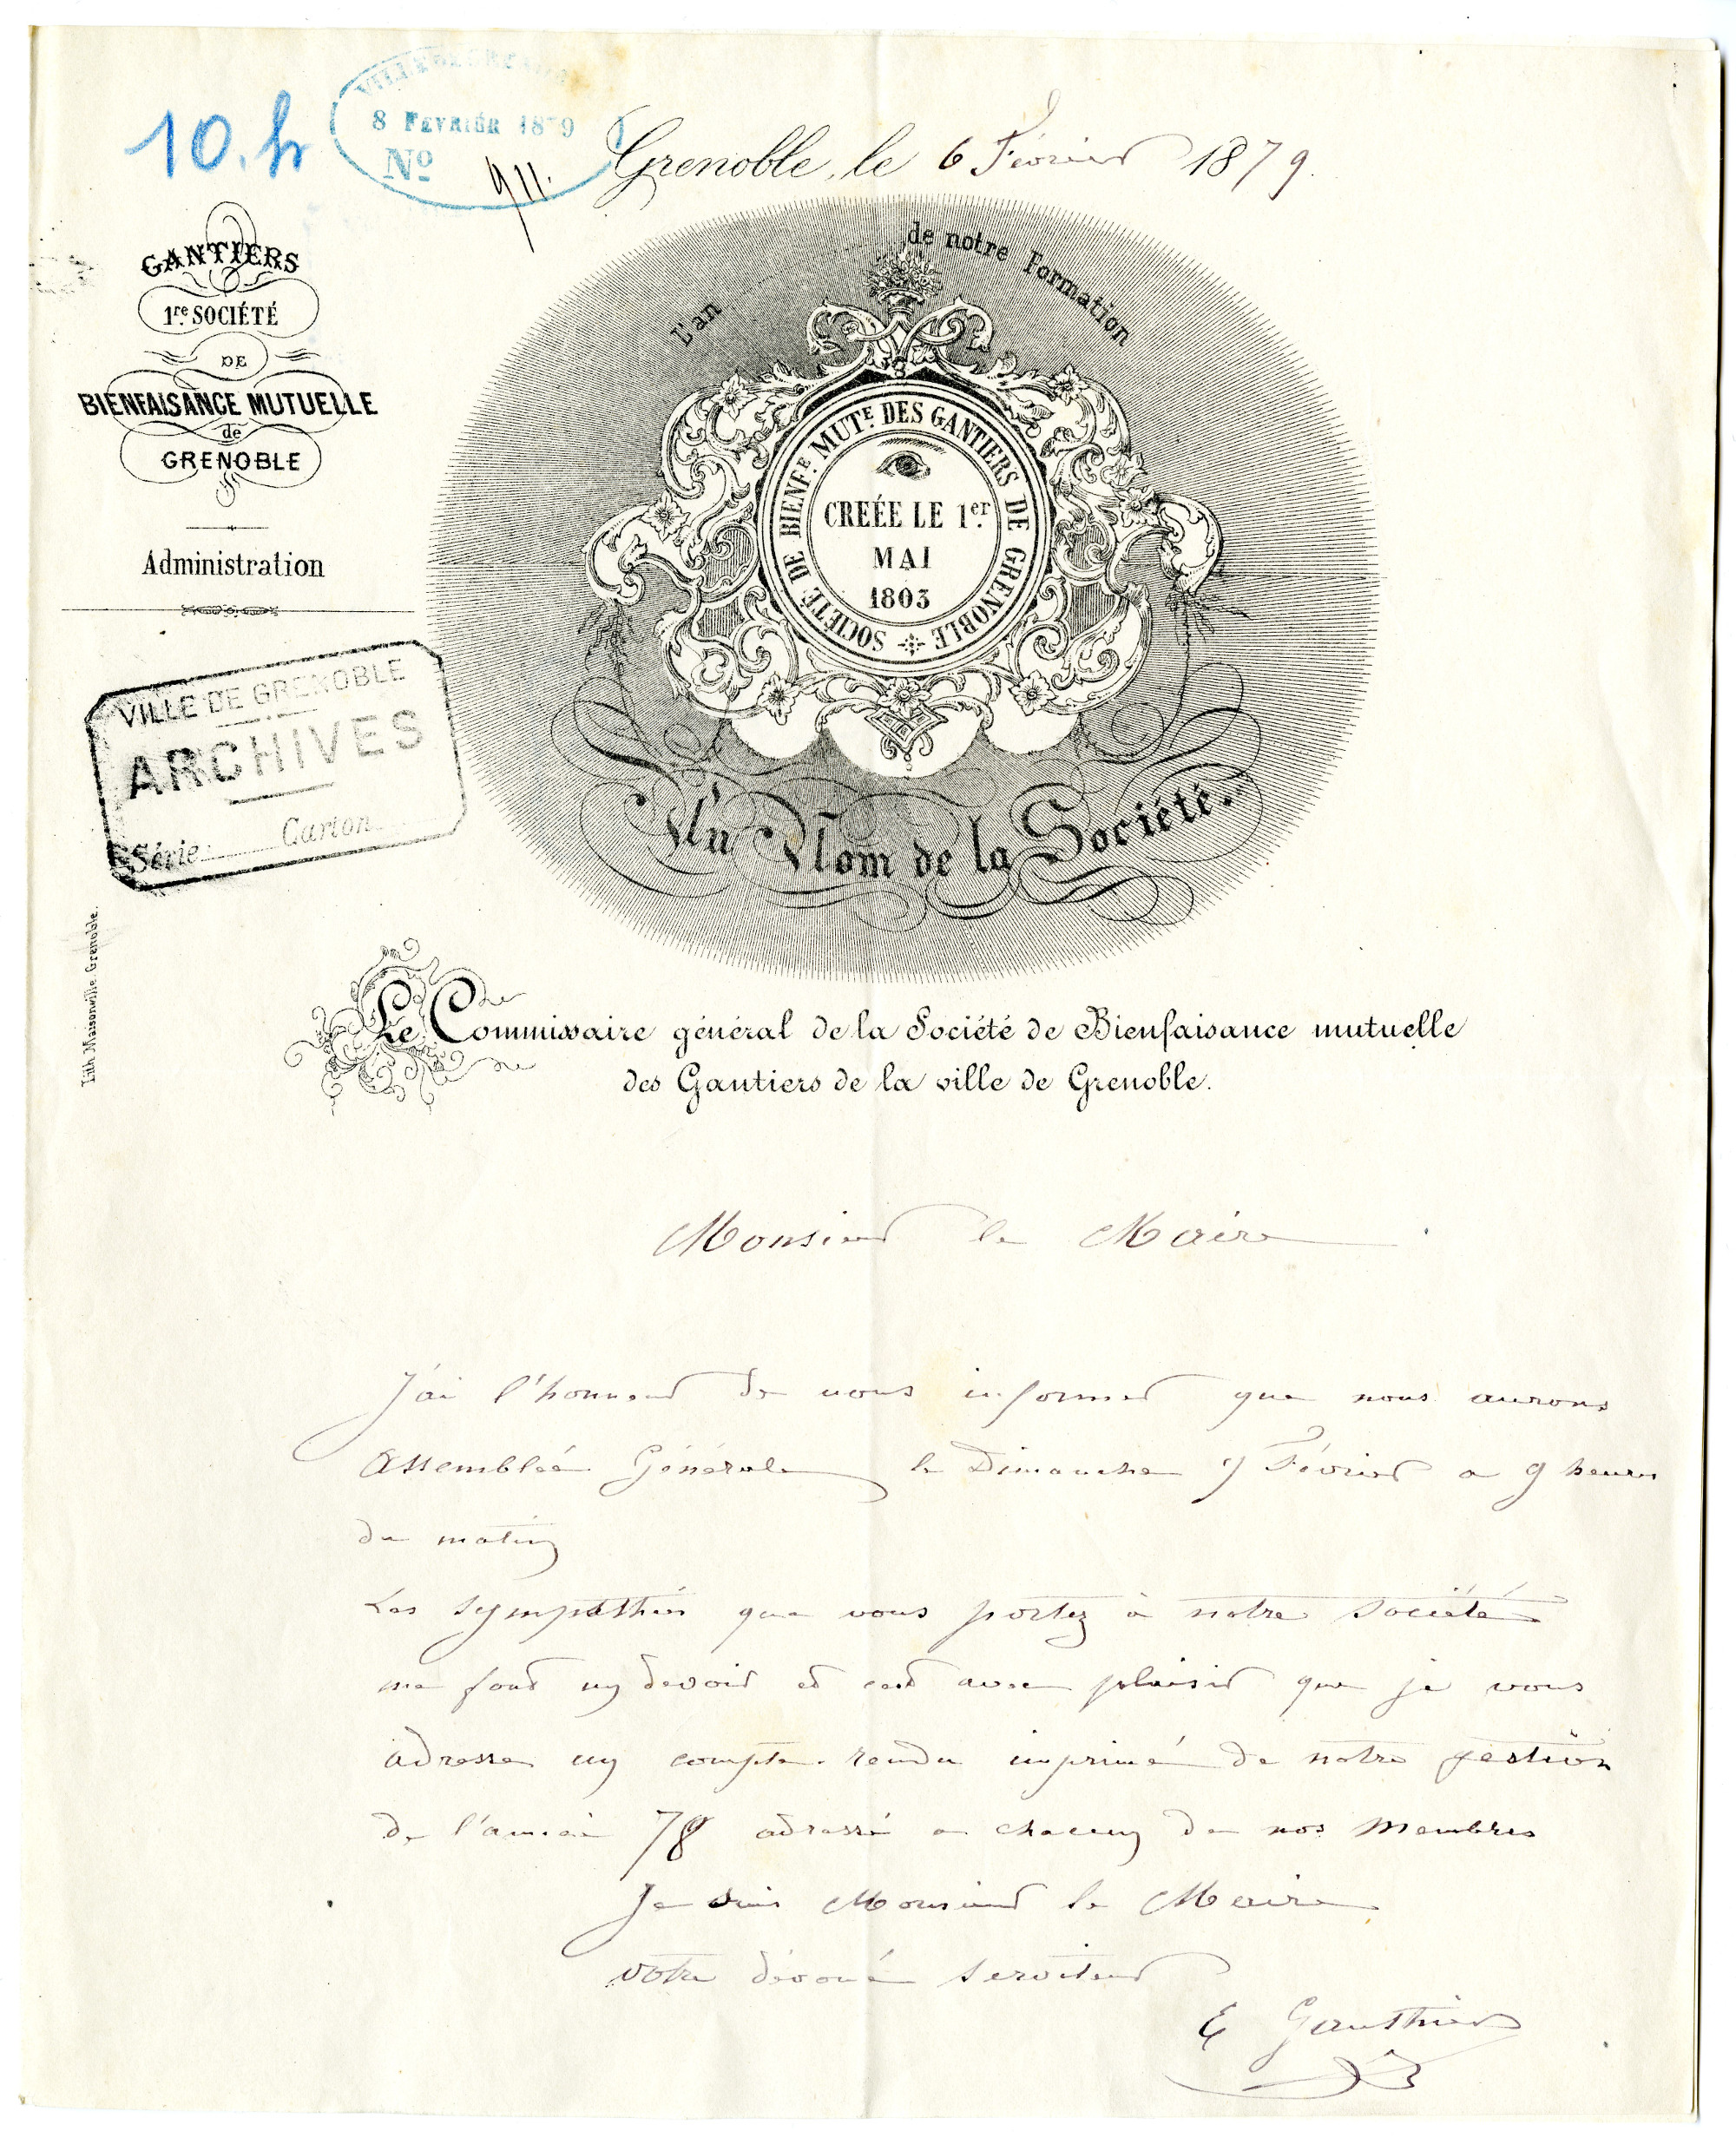 10. h
VILLE DE GRENOBLE
8 FEVRIER 1879
Nº 911.
Grenoble, le 6 Février 1879.
GANTIERS
1re SOCIÉTÉ
DE
BIENFAISANCE MUTUELLE
de
GRENOBLE
Administration
L'an de notre Formation
SOCIÉTÉ DE BIENFE. MUTE. DES GANTIERS DE GRENOBLE
CREÉE LE 1er
MAI
1803
Au Nom de la Société.
VILLE DE GRENOBLE
ARCHIVES
Série Carton
Lith. Maisonville, Grenoble.
Le Commissaire général de la Société de Bienfaisance mutuelle
des Gantiers de la ville de Grenoble.
Monsieur le Maire
J'ai l'honneur de vous informer que nous aurons
Assemblée Générale le Dimanche 9 Février a 9 heures
du matin
Les sympathies que vous portez à notre société
me font un devoir et cest avec plaisir que je vous
adresse un compte-rendu imprimé de notre gestion
de l'année 78 adressé a chacun de nos membres
Je suis Monsieur le Maire
votre dévoué serviteur
E Gauthier